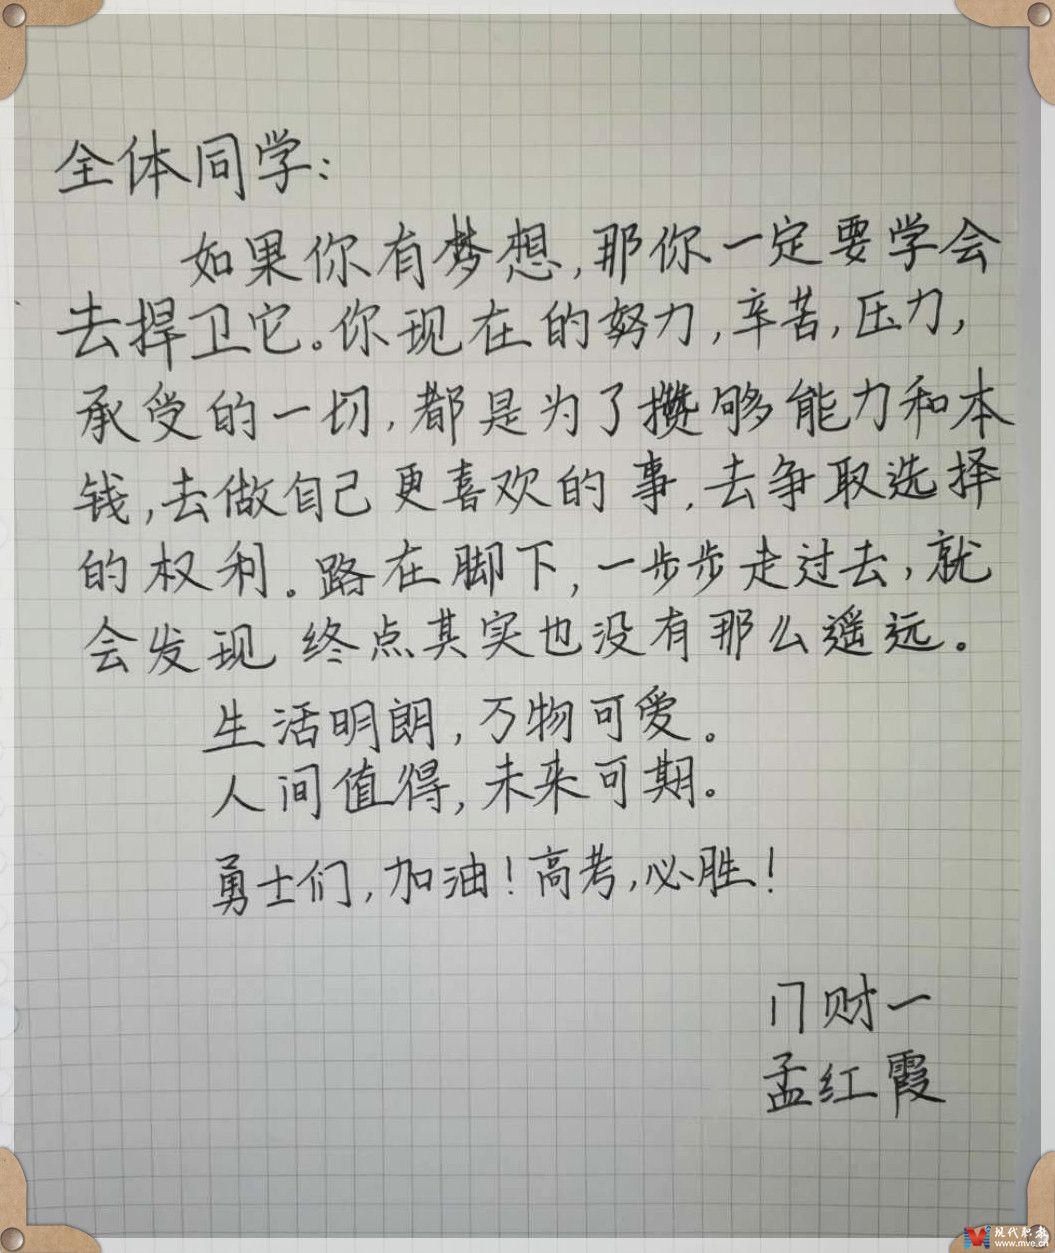 全体同学：
如果你有梦想，那你一定要学会
去捍卫它。你现在的努力，辛苦，压力，
承受的一切，都是为了攒够能力和本
钱，去做自己更喜欢的事，去争取选择
的权利。路在脚下，一步步走过去，就
会发现终点其实也没有那么遥远。
生活明朗，万物可爱。
人间值得，未来可期。
勇士们，加油！高考，必胜！
17财一
孟红霞
现代职教
www.mve.cn